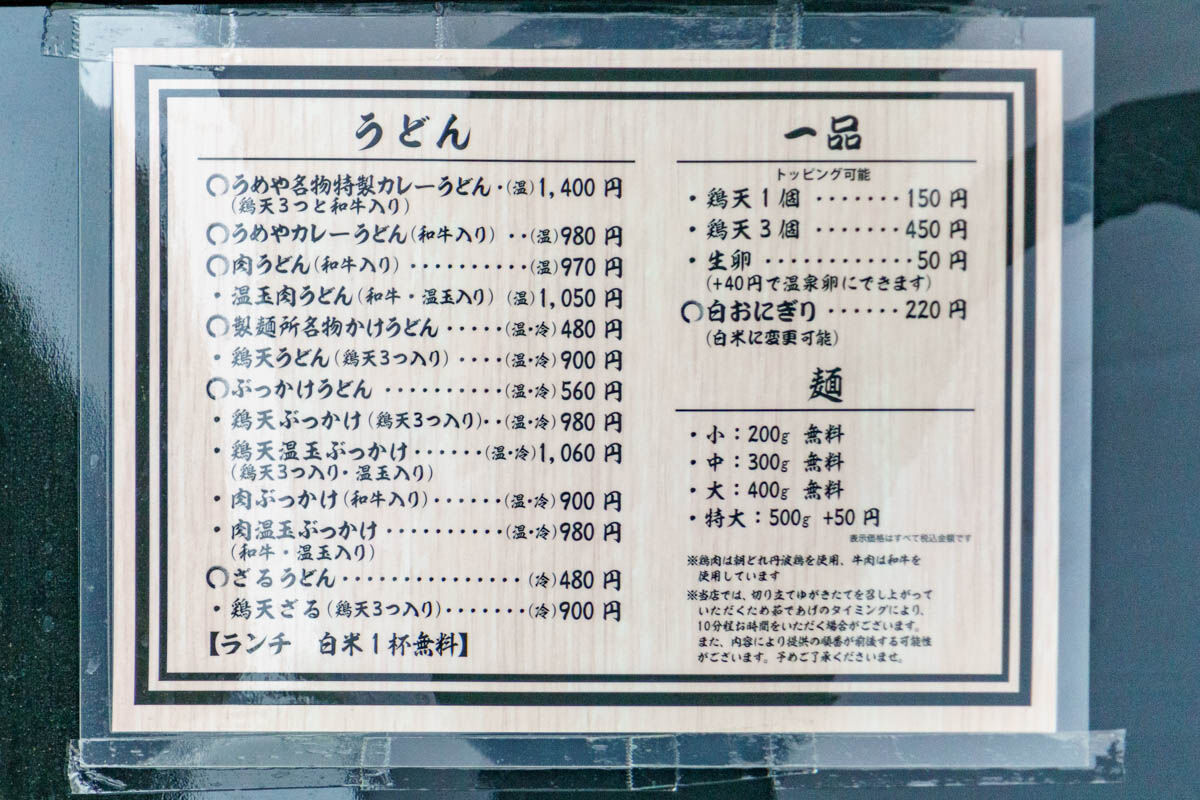 うどん
○うめや名物特製カレーうどん・(温)1,400円
(鶏天3つと和牛入り)
○うめやカレーうどん(和牛入り)・・(温)980円
○肉うどん(和牛入り)・・・・・・・・・・(温)970円
・温玉肉うどん(和牛・温玉入り)(温)1,050円
○製麺所名物かけうどん・・・・・(温・冷)480円
・鶏天うどん(鶏天3つ入り)・・・・(温・冷)900円
○ぶっかけうどん・・・・・・・・・・(温・冷)560円
・鶏天ぶっかけ(鶏天3つ入り)・・(温・冷)980円
・鶏天温玉ぶっかけ・・・・・・(温・冷)1,060円
(鶏天3つ入り・温玉入り)
・肉ぶっかけ(和牛入り)・・・・・・(温・冷)900円
・肉温玉ぶっかけ・・・・・・・・・・(温・冷)980円
(和牛・温玉入り)
○ざるうどん・・・・・・・・・・・・・・・(冷)480円
・鶏天ざる(鶏天3つ入り)・・・・・・・(冷)900円
【ランチ 白米1杯無料】
一品
トッピング可能
・鶏天1個・・・・・・・150円
・鶏天3個・・・・・・・450円
・生卵・・・・・・・・・・・・50円
(+40円で温泉卵にできます)
○白おにぎり・・・・・・220円
(白米に変更可能)
麺
・小:200g 無料
・中:300g 無料
・大:400g 無料
・特大:500g +50円
表示価格はすべて税込金額です
※鶏肉は朝どれ丹波鶏を使用、牛肉は和牛を
使用しています
※当店では、切り立てゆがきたてを召し上がって
いただくため茹であげのタイミングにより、
10分程お時間をいただく場合がございます。
また、内容により提供の順番が前後する可能性
がございます。予めご了承くださいませ。